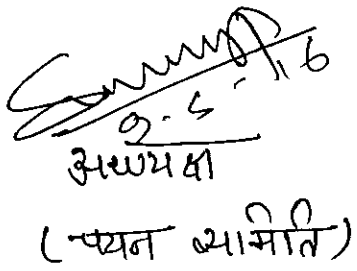 9-5-16
अध्यक्ष
(चयन समिति)